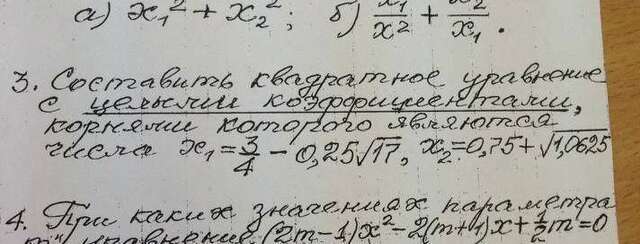 а) x₁² + x₂²; б) x₁/x² + x₂/x₁.
3. Составить квадратное уравнение
с целыми коэффициентами,
корнями которого являются
числа x₁ = 3/4 − 0,25√17, x₂ = 0,75 + √1,0625
4. При каких значениях параметра
"m" уравнение (2m−1)x² − 2(m+1)x + 1/2 m = 0